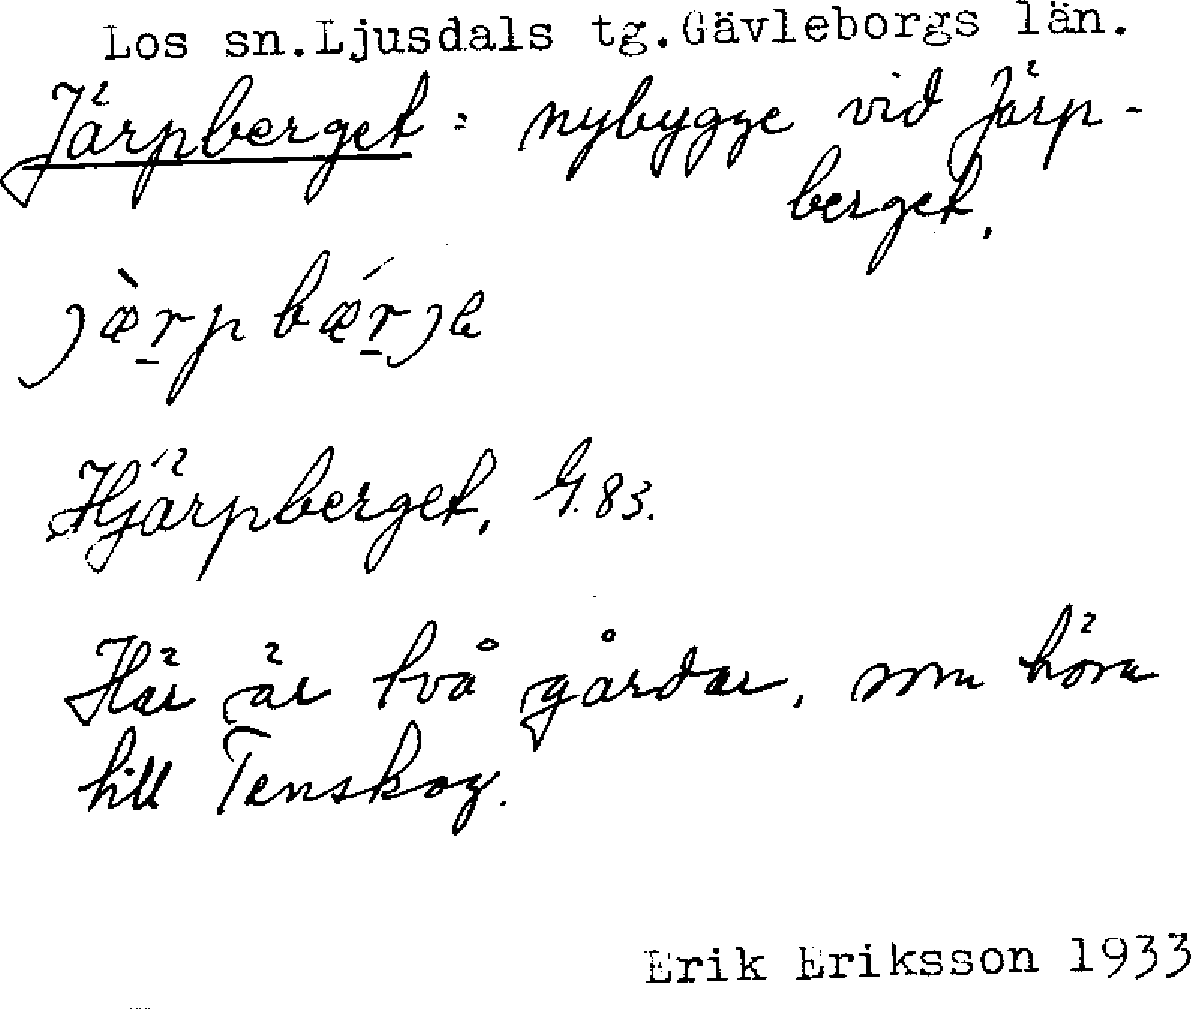 Los sn.Ljusdals tg.Gävleborgs län.
Järpberget: nybygge vid Järp-
berget.
jæ̀r̲pbǽr̲je
Hjärpberget, G.83.
Här är två gårdar, som höra
till Tenskog.
Erik Eriksson 1933